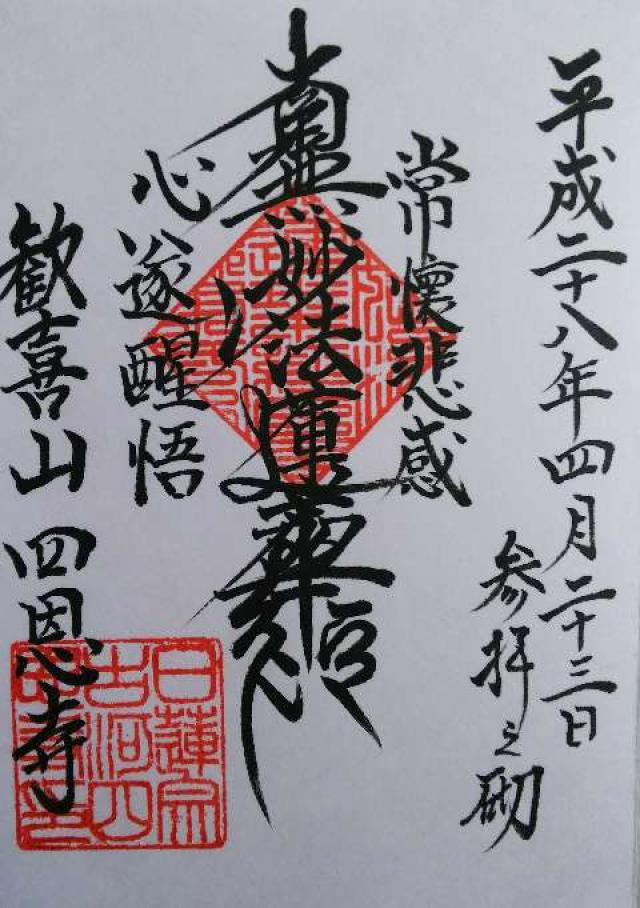 平成二十八年四月二十三日
参拝之砌
常懐悲感
南無妙法蓮華経
心遂醒悟
歓喜山 四恩寺
日蓮宗
古河四
恩寺之印